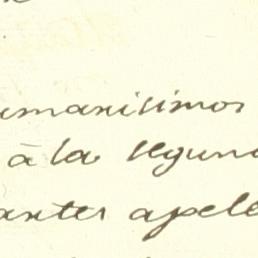 umanisimos
à la segund
antes apele